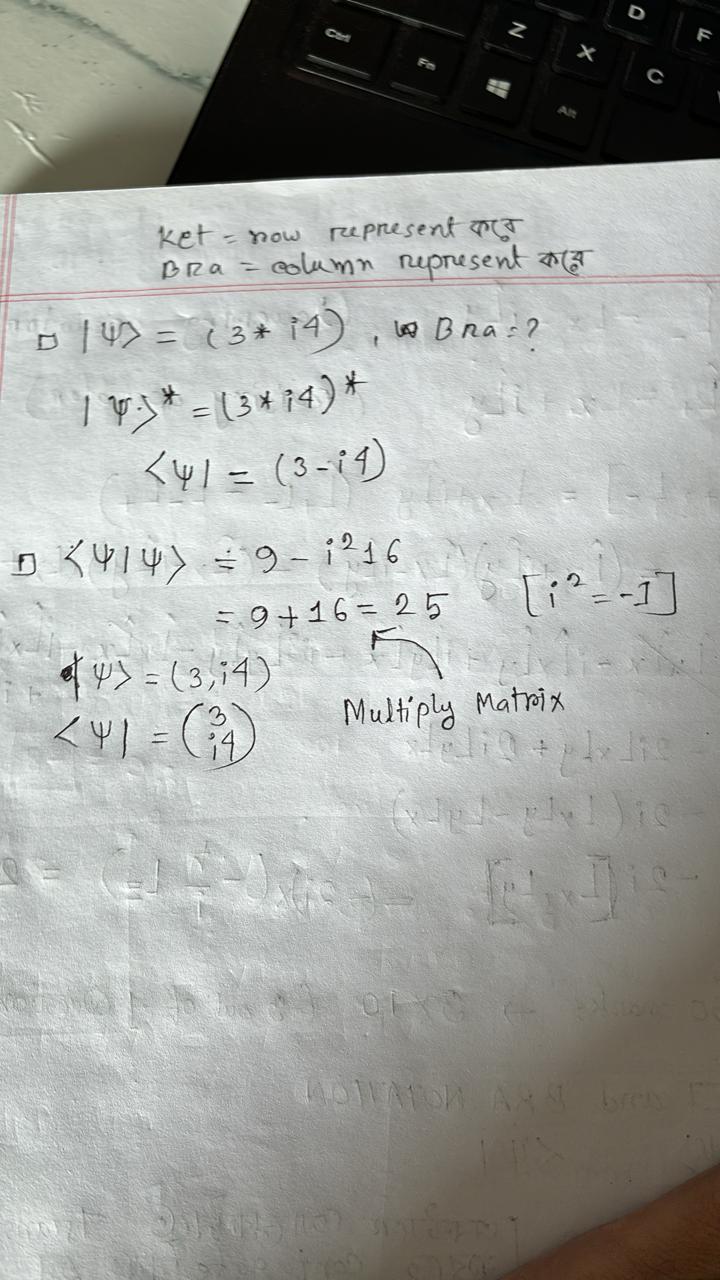 Ctrl
Fn
Alt
Z
X
C
D
F
Ket = row represent করে
BRa = column represent করে
|Ψ> = (3* i4), Bra = ?
|Ψ>* = (3* i4)*
<Ψ| = (3-i4)
<Ψ|Ψ> = 9 - i²16
= 9+16 = 25 [i² = -1]
|Ψ> = (3, i4)
<Ψ| = (3 i4)
Multiply Matrix